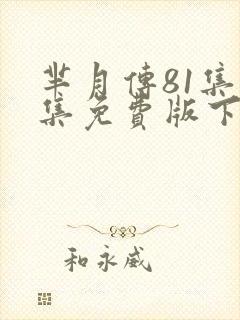 芈月傳81集
集免費版下
和永威